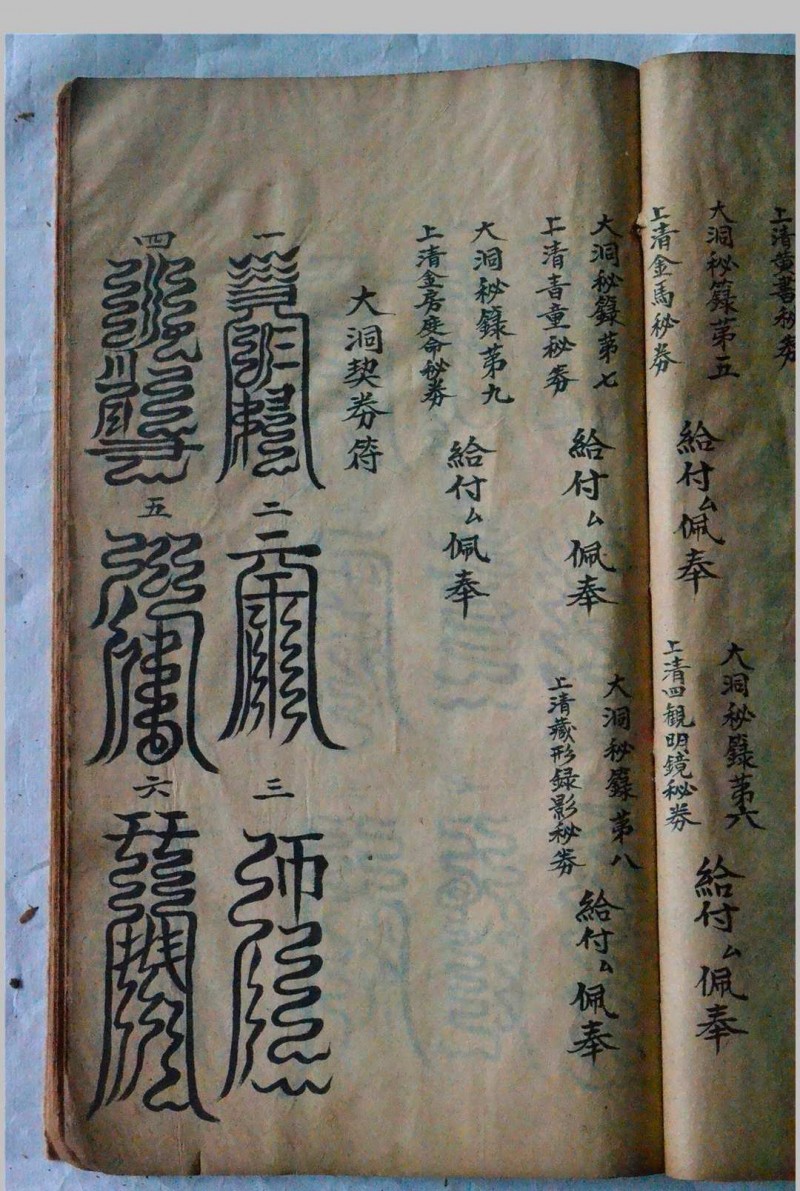 上清黄書秘券
大洞秘籙第五
上清金馬秘券
給付厶佩奉
大洞秘籙第六
上清四観明鏡秘券
給付厶佩奉
大洞秘籙第七
上清青童秘券
給付厶佩奉
大洞秘籙第八
上清藏形録影秘券
給付厶佩奉
大洞秘籙第九
上清金房度命秘券
給付厶佩奉
大洞契券符
一
二
三
四
五
六